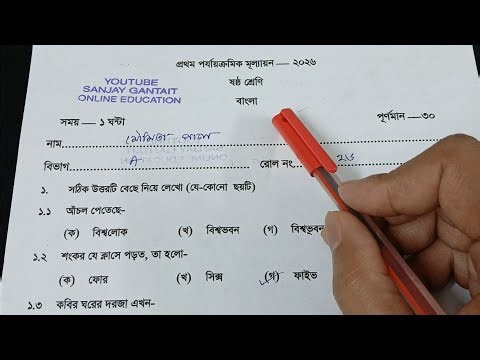 প্রথম পর্যায়ক্রমিক মূল্যায়ন — ২০২৬
YOUTUBE
SANJAY GANTAIT
ONLINE EDUCATION
ষষ্ঠ শ্রেণি
বাংলা
সময় — ১ ঘন্টা পূর্ণমান — ৩০
নাম মৌমিতা পাল
বিভাগ A রোল নং ২৬
১. সঠিক উত্তরটি বেছে নিয়ে লেখো (যে-কোনো ছয়টি)
১.১ আঁচল পেতেছে-
(ক) বিশ্বলোক (খ) বিশ্বভবন (গ) বিশ্বভুবন
১.২ শংকর যে ক্লাসে পড়ত, তা হলো-
(ক) ফোর (খ) সিক্স (গ) ফাইভ
১.৩ কবির ঘরের দরজা এখন-